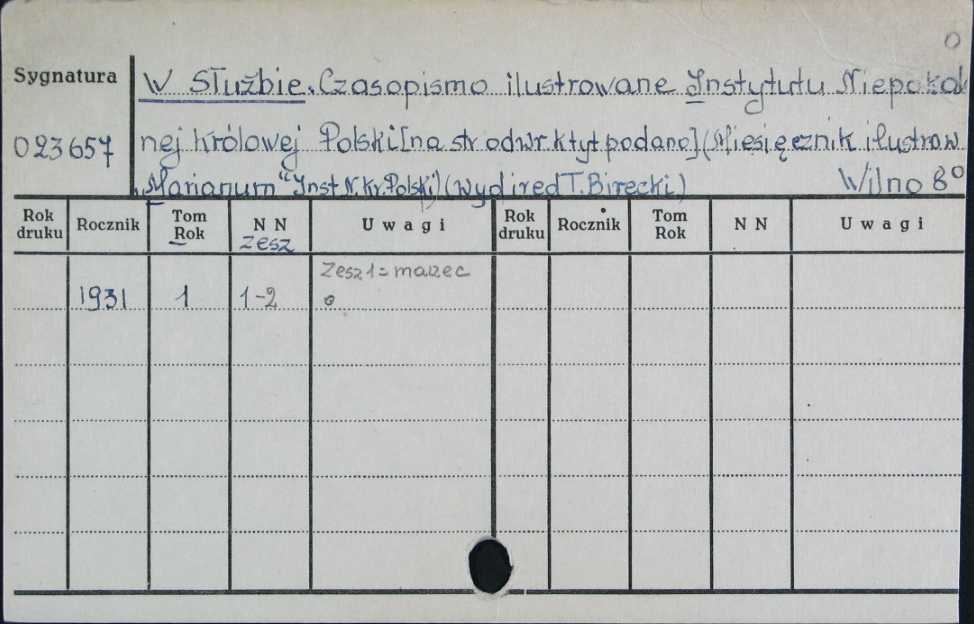 0
Sygnatura
W Służbie. Czasopismo ilustrowane Instytutu Niepokal
023657
nej Królowej Polski [na str odwr. k tyt podano] (Miesięcznik ilustrow.
"Marianum" Inst N. Kr. Polski) (wyd i red T. Birecki) Wilno 8°
Rok druku Rocznik Tom Rok N N Uwagi Rok druku Rocznik Tom Rok N N Uwagi
zesz
Zesz 1 = marzec
1931 1 1-2 o